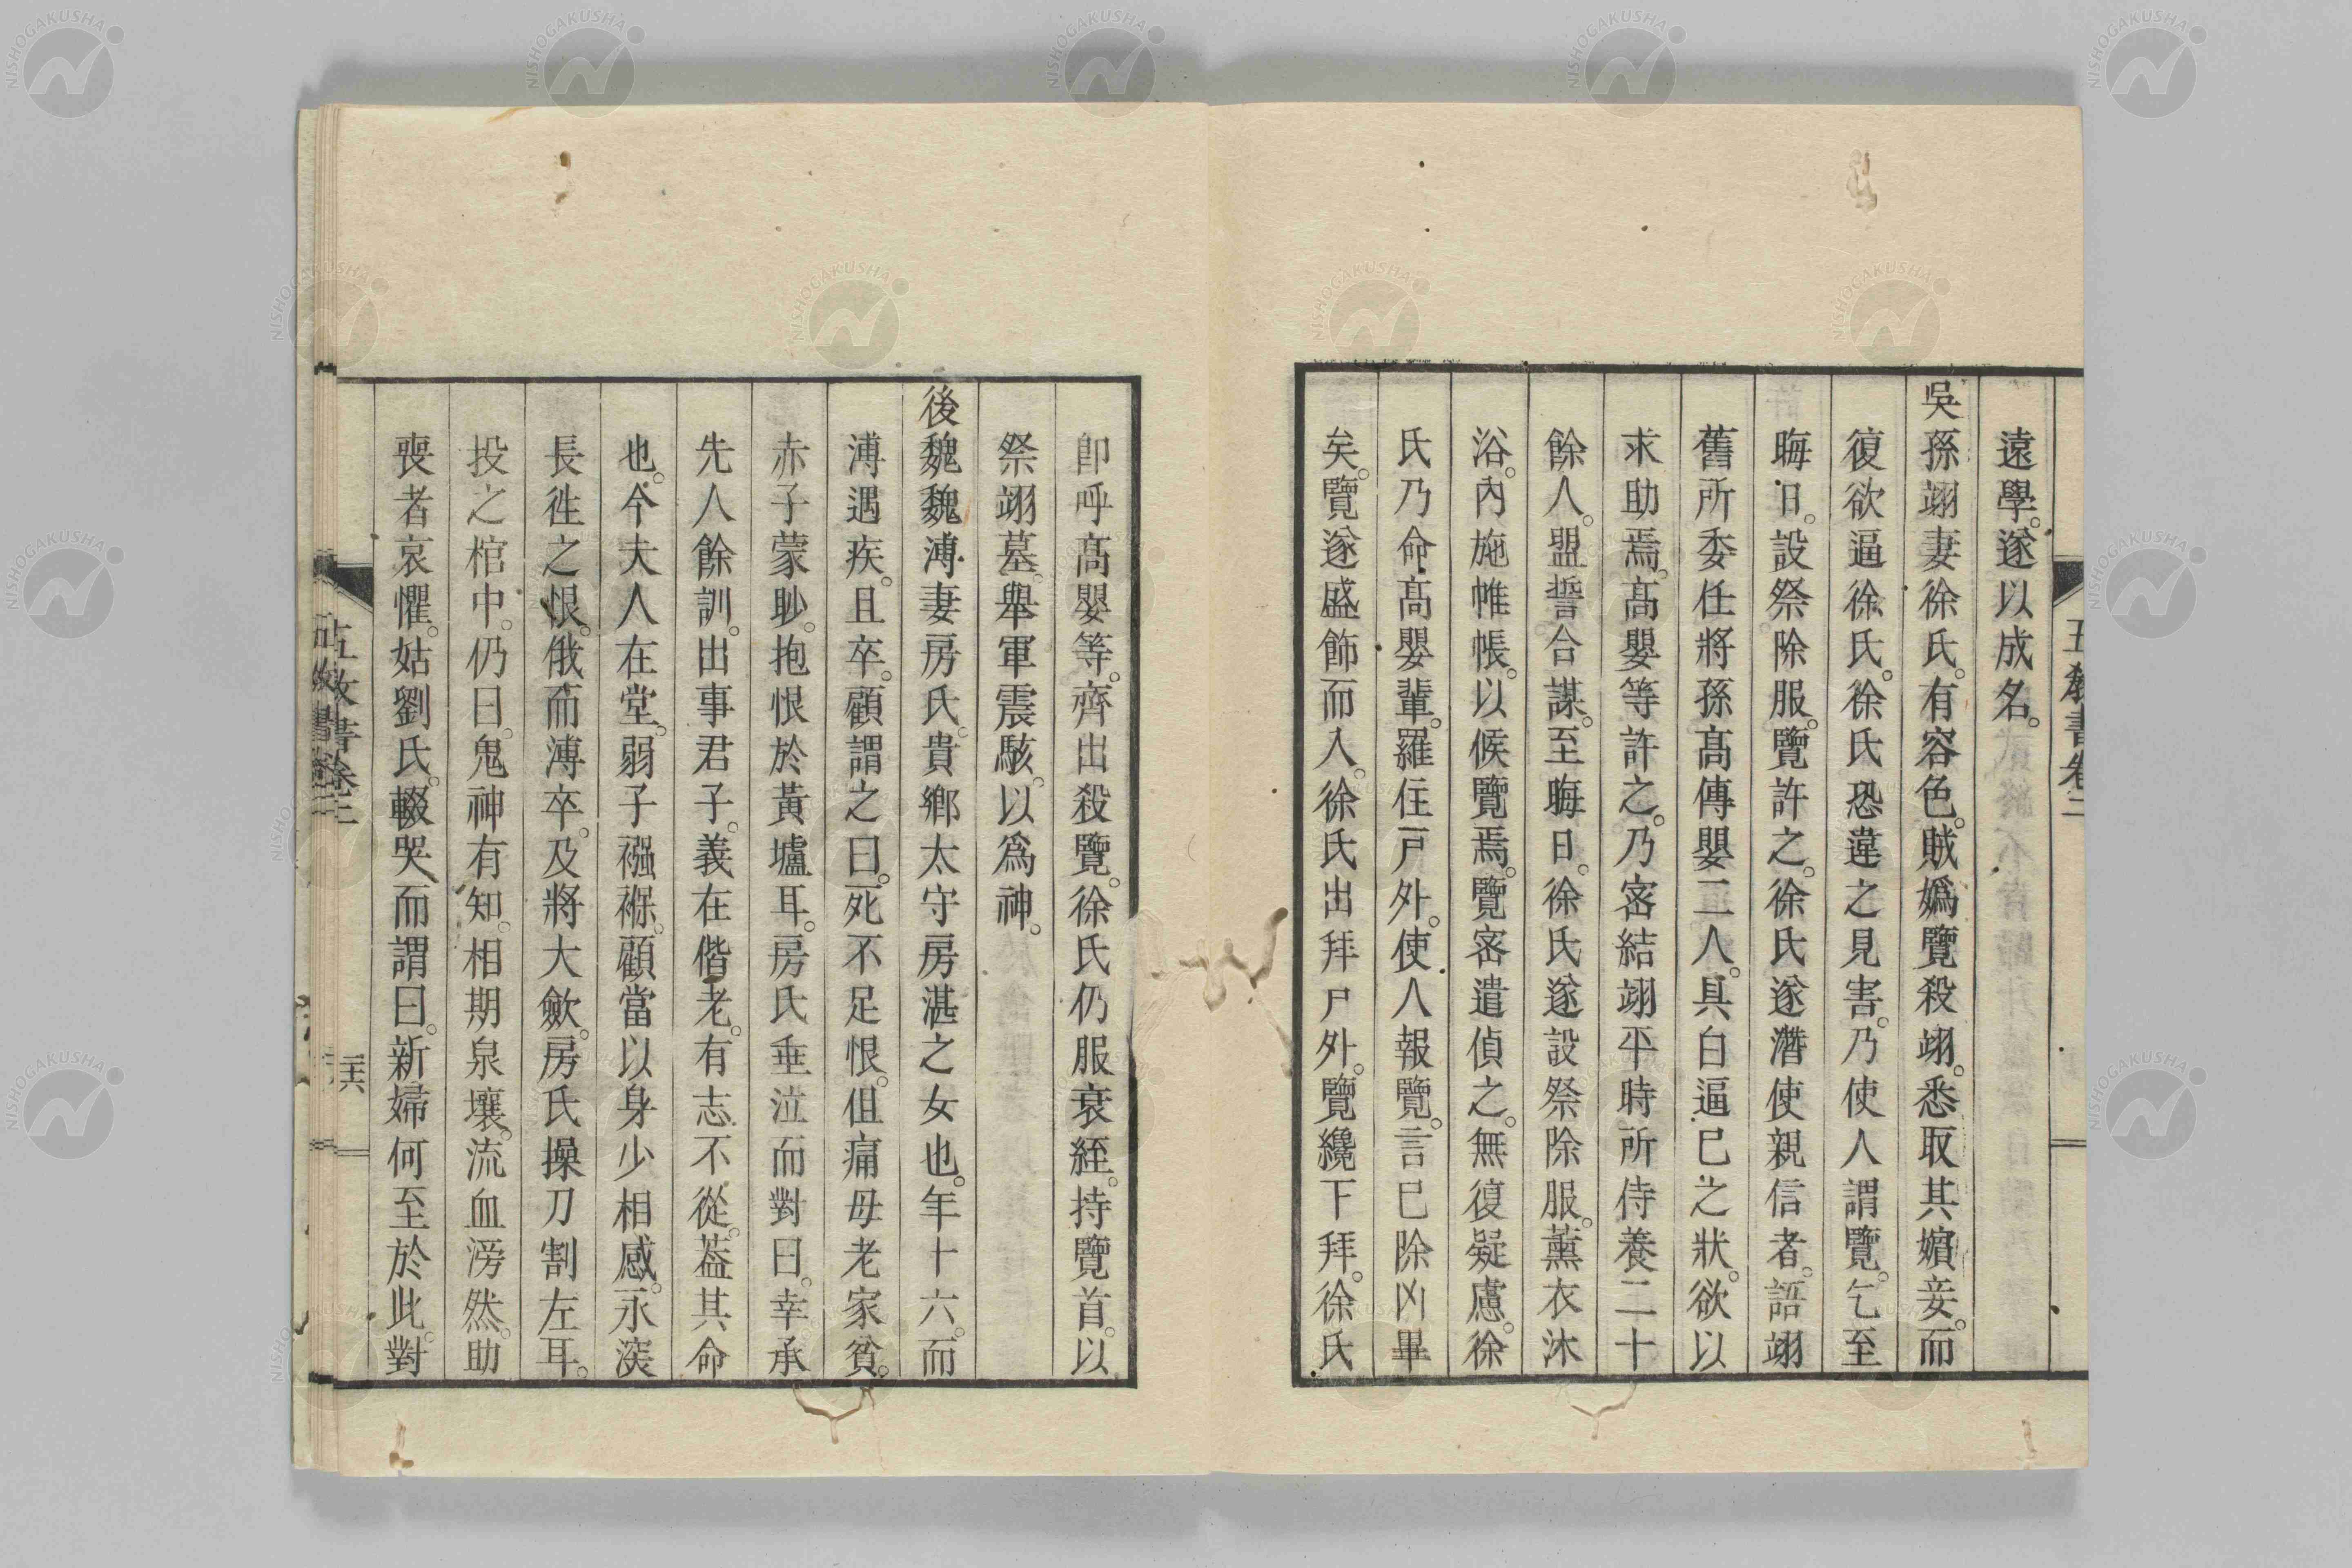 五教書卷二
遠學。遂以成名。
吳孫翊妻徐氏。有容色。賊嬀覽殺翊。悉取其嬪妾。而
復欲逼徐氏。徐氏恐違之見害。乃使人謂覽。乞至
晦日。設祭除服。覽許之。徐氏遂濳使親信者。語翊
舊所委任將孫髙傳嬰二人。具白逼已之狀。欲以
求助焉。髙嬰等許之。乃密結翊平時所侍養二十
餘人。盟誓合謀。至晦日。徐氏遂設祭除服。薫衣沐
浴。內施帷帳。以候覽焉。覽密遣偵之。無復疑慮。徐
氏乃命髙嬰輩。羅住戸外。使人報覽。言已除凶畢
矣。覽遂盛飾而入。徐氏出拜戸外。覽纔下拜。徐氏
卽呼髙嬰等。齊出殺覽。徐氏仍服衰絰。持覽首。以
祭翊墓。舉軍震駭。以爲神。
後魏魏溥妻房氏。貴鄉太守房湛之女也。年十六。而
溥遇疾。且卒。顧謂之曰。死不足恨。但痛母老家貧。
赤子蒙眇。抱恨於黃壚耳。房氏垂泣而對曰。幸承
先人餘訓。出事君子。義在偕老。有志不從。葢其命
也。今夫人在堂。弱子襁褓。顧當以身少相感。永深
長徃之恨。俄而溥卒。及將大斂。房氏操刀割左耳。
投之棺中。仍曰。鬼神有知。相期泉壤。流血滂然。助
喪者哀懼。姑劉氏。輟哭而謂曰。新婦何至於此。對
五教書卷二